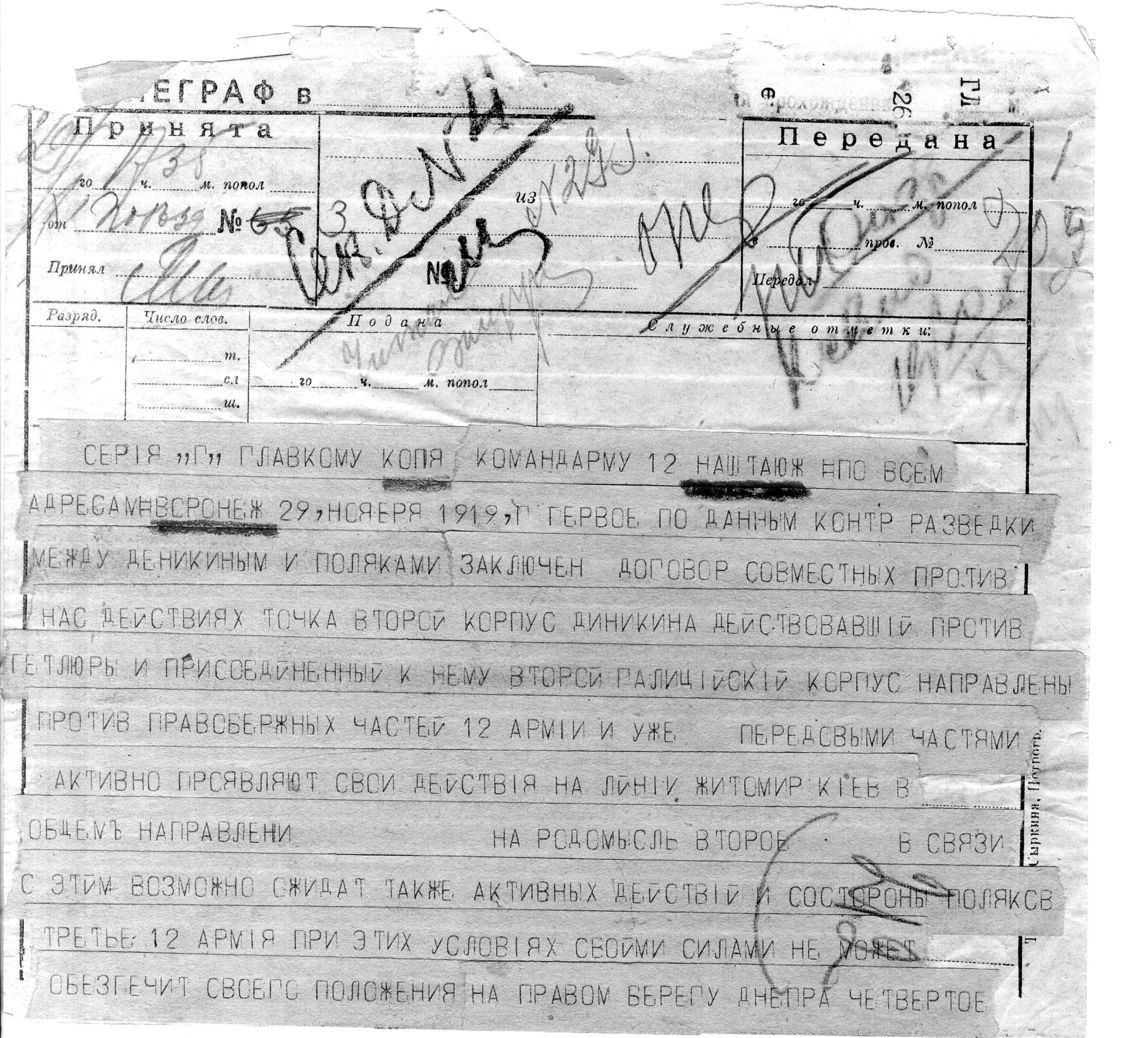 ЕГРАФ в
ГЛ.
26
Принята
Передана
го ч. м. попол
от №
из
3
Сек. Д. N 4
го ч. м. попол
пров. №
Принял
№
Передал
Разряд.
Число слов.
Подана
Служебные отметки:
т.
сл
ш.
го ч. м. попол
СЕРІЯ „Г" ГЛАВКОМУ КОПЯ КОМАНДАРМУ 12 НАШТАЮЖ =ПО ВСЕМ
АДРЕСАМ=ВСРОНЕЖ 29,НОЯЕРЯ 1919,Г ГЕРВОЕ ПО ДАННЫМ КОНТР РАЗВЕДКИ
МЕЖДУ ДЕНИКИНЫМ И ПОЛЯКАМИ ЗАКЛЮЧЕН ДОГОВОР СОВМЕСТНЫХ ПРОТИВ
НАС ДЕЙСТВИЯХ ТОЧКА ВТОРОЙ КОРПУС ДИНИКИНА ДЕЙСТВОВАВШІЙ ПРОТИВ
ГЕТЛЮРЫ И ПРИСОЕДЙНЕННЫЙ К НЕМУ ВТОРОЙ ГАЛИЦІЙСКІЙ КОРПУС НАПРАВЛЕНЫ
ПРОТИВ ПРАВОБЕРЖНЫХ ЧАСТЕЙ 12 АРМІИ И УЖЕ ПЕРЕДСВЫМИ ЧАСТЯМИ
АКТИВНО ПРСЯВЛЯЮТ СВОИ ДЕЙСТВІЯ НА ЛЙНІИ ЖИТОМИР КІЕВ В
ОБЩЕМЪ НАПРАВЛЕНИ НА РОДОМЫСЛЬ ВТОРОЕ В СВЯЗИ
С ЭТЙМ ВОЗМОЖНО СЖИДАТ ТАКЖЕ АКТИВНЫХ ДЕЙСТВІЙ И СОСТОРОНЫ ПОЛЯКСВ
ТРЕТЬЕ 12 АРМІЯ ПРИ ЭТИХ УСЛОВІЯХ СВОЙМИ СИЛАМИ НЕ МОЖЕТ
ОБЕЗГЕЧИТ СВОЕГО ПОЛОЖЕНИЯ НА ПРАВОМ БЕРЕГУ ДНЕПРА ЧЕТВЕРТОЕ
Сыркина, Петрогр.